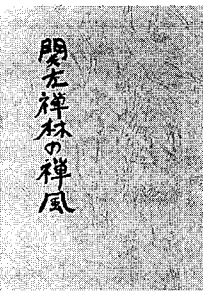 関左禅林の禅風